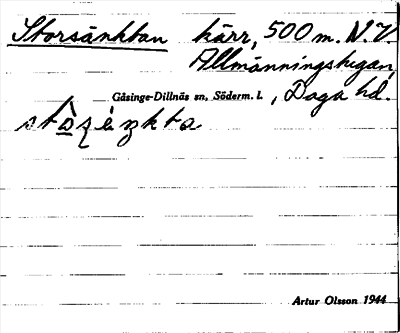 Storsänktan kärr, 500 m. N.V.
Allmänningstugan,
Gåsinge-Dillnäs sn, Söderm. l., Daga hd.
Artur Olsson 1944